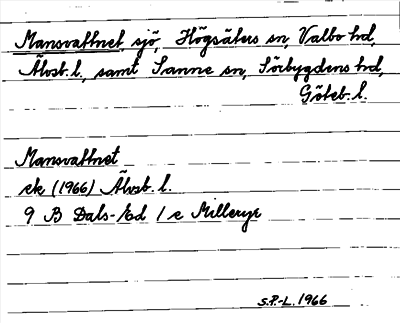 Mansvattnet sjö, Högsäters sn, Valbo hd,
Älvsb. l., samt Sanne sn, Sörbygdens hd,
Göteb. l.
Mansvattnet
ek (1966) Älvsb. l.
9 B Dals-Ed 1 e Milleryr
S.P.-L. 1966